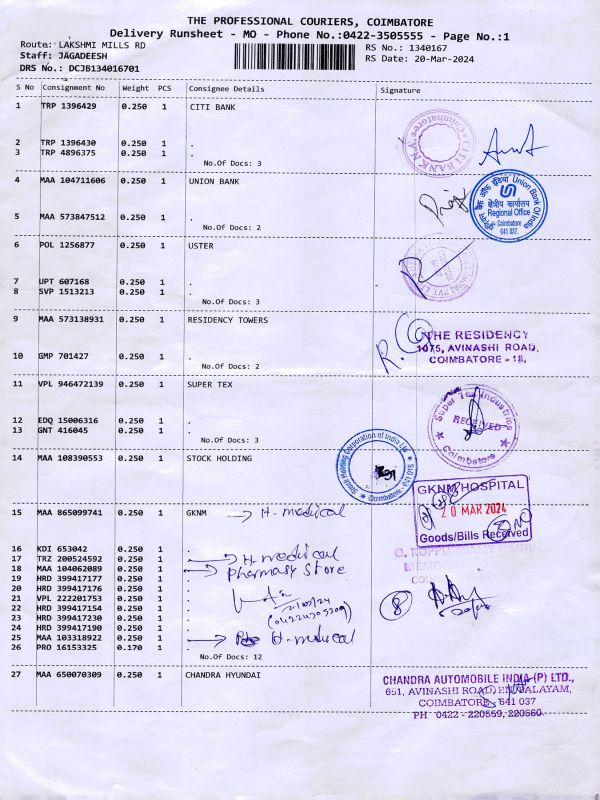 THE PROFESSIONAL COURIERS, COIMBATORE
Delivery Runsheet - MO - Phone No.:0422-3505555 - Page No.:1
Route: LAKSHMI MILLS RD
RS No.: 1340167
Staff: JAGADEESH
RS Date: 20-Mar-2024
DRS No.: DCJB134016701
S No Consignment No Weight PCS Consignee Details Signature
1 TRP 1396429 0.250 1 CITI BANK
2 TRP 1396430 0.250 1 .
3 TRP 4896375 0.250 1 .
No.Of Docs: 3
4 MAA 104711606 0.250 1 UNION BANK
Union Bank Of India
क्षेत्रीय कार्यालय
Regional Office
Coimbatore
641 037.
5 MAA 573847512 0.250 1 .
No.Of Docs: 2
6 POL 1256877 0.250 1 USTER
7 UPT 607168 0.250 1 .
8 SVP 1513213 0.250 1 .
No.Of Docs: 3
9 MAA 573138931 0.250 1 RESIDENCY TOWERS
THE RESIDENCY
1075, AVINASHI ROAD,
COIMBATORE - 18.
10 GMP 701427 0.250 1 .
No.Of Docs: 2
11 VPL 946472139 0.250 1 SUPER TEX
Super Tex Industries
RECEIVED
Coimbatore
12 EDQ 15006316 0.250 1 .
13 GNT 416045 0.250 1 .
No.Of Docs: 3
14 MAA 108390553 0.250 1 STOCK HOLDING
Stock Holding Corporation of India Ltd
Coimbatore
15 MAA 865099741 0.250 1 GKNM H-medical
GKNM HOSPITAL
20 MAR 2024
Goods/Bills Received
16 KDI 653042 0.250 1 .
17 TRZ 200524592 0.250 1 . H-medical
18 MAA 104062089 0.250 1 . pharmasy store
19 HRD 399417177 0.250 1 .
20 HRD 399417176 0.250 1 .
21 VPL 222201753 0.250 1 .
22 HRD 399417154 0.250 1 .
23 HRD 399417230 0.250 1 .
24 HRD 399417190 0.250 1 .
8
25 MAA 103318922 0.250 1 . H-medical
26 PRO 16153325 0.170 1 .
No.Of Docs: 12
27 MAA 650070309 0.250 1 CHANDRA HYUNDAI
CHANDRA AUTOMOBILE INDIA (P) LTD.,
651, AVINASHI ROAD,
COIMBATORE 641 037
PH 0422 - 220559, 220560.